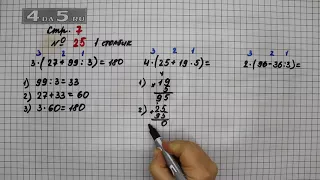 4 ДА 5.RU
Стр. 7
№ 25 1 столбик
3 2 1
3·(27+99:3)=180
1) 99:3=33
2) 27+33=60
3) 3·60=180
3 2 1
4·(25+19·5)=
1) ×19
5
95
2) +25
95
0
3 2 1
2·(96-36:3)=